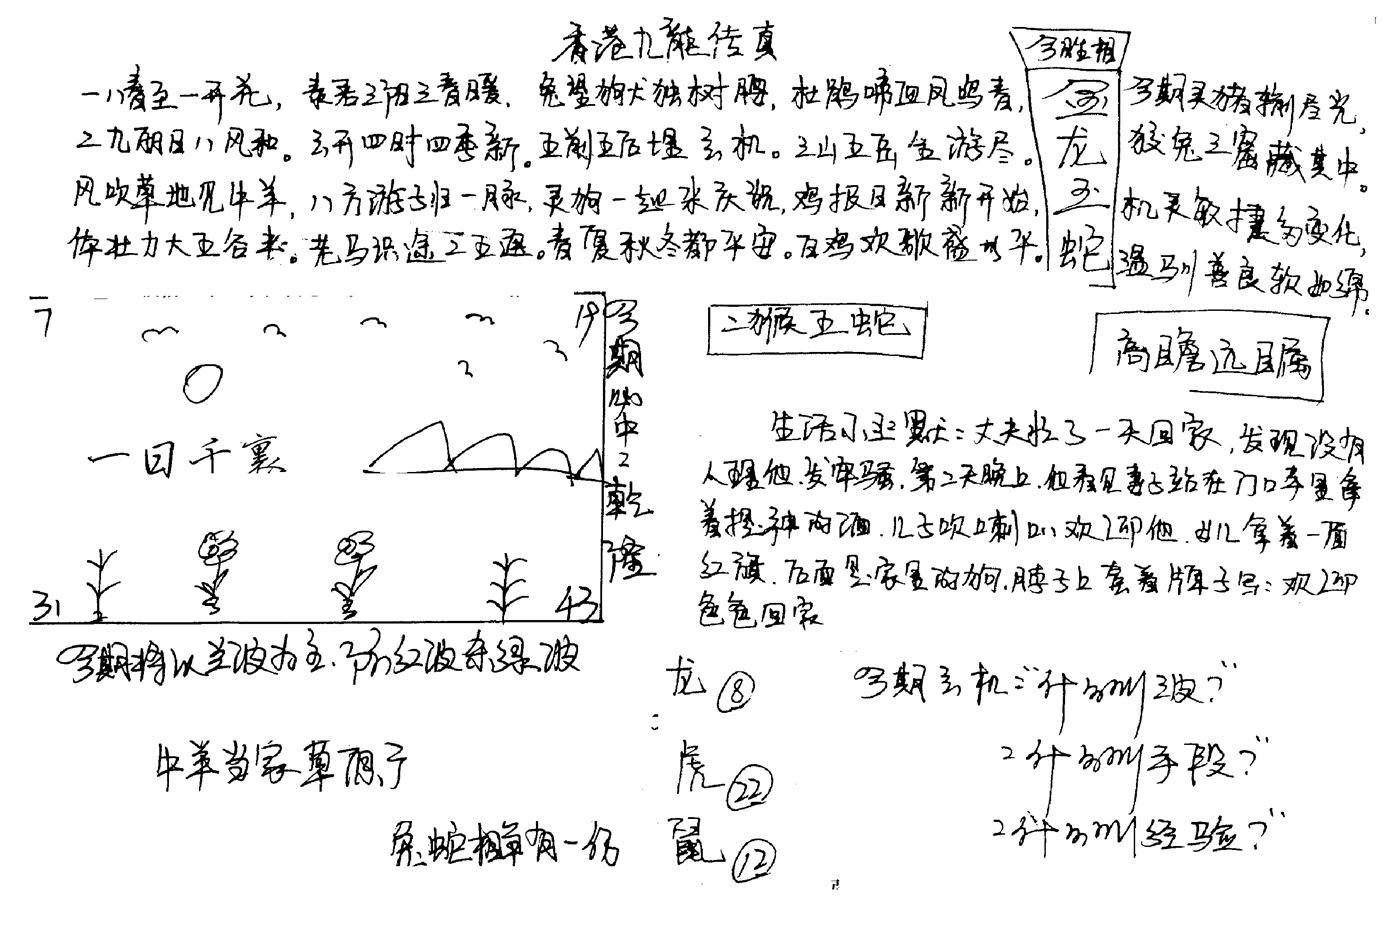 香港九龍传真
一八春至一开花，春若三阳三春暖，兔望狗犬独树腾，杜鹃啼血风鸣春，
三九朗日八风和。云开四时四季新。五前五后埋玄机。三山五岳全游尽。
风吹草地见牛羊，八方游子归一脉，灵狗一起来庆祝，鸡报日新新开始，
体壮力大五谷来。老马识途二五连。春夏秋冬都平安。百鸡欢歌盛水平。
今胜相
金
龙
玉
蛇
今期灵猪输尽光，
狡兔三窟藏其中。
机灵敏捷多变化，
温驯善良软如绵。
7
19
一日千裏
31
43
今期心中之乾隆
二猴五蛇
高瞻远瞩
生活小幽默：丈夫忙了一天回家，发现没有
人理他，发牢骚，第二天晚上，但看见妻子站在门口手里拿
着提神的酒，儿子吹口刺叭欢迎他，女儿拿着一面
红旗，后面是家里的狗，脖子上套着牌子写：欢迎
爸爸回家
今期将以兰波为主，防红波杀绿波
牛羊当家草原宁
兔蛇相争有一伤
龙 8
虎 22
鼠 12
今期玄机："什么叫波？"
"什么叫手段？"
"什么叫经验？"